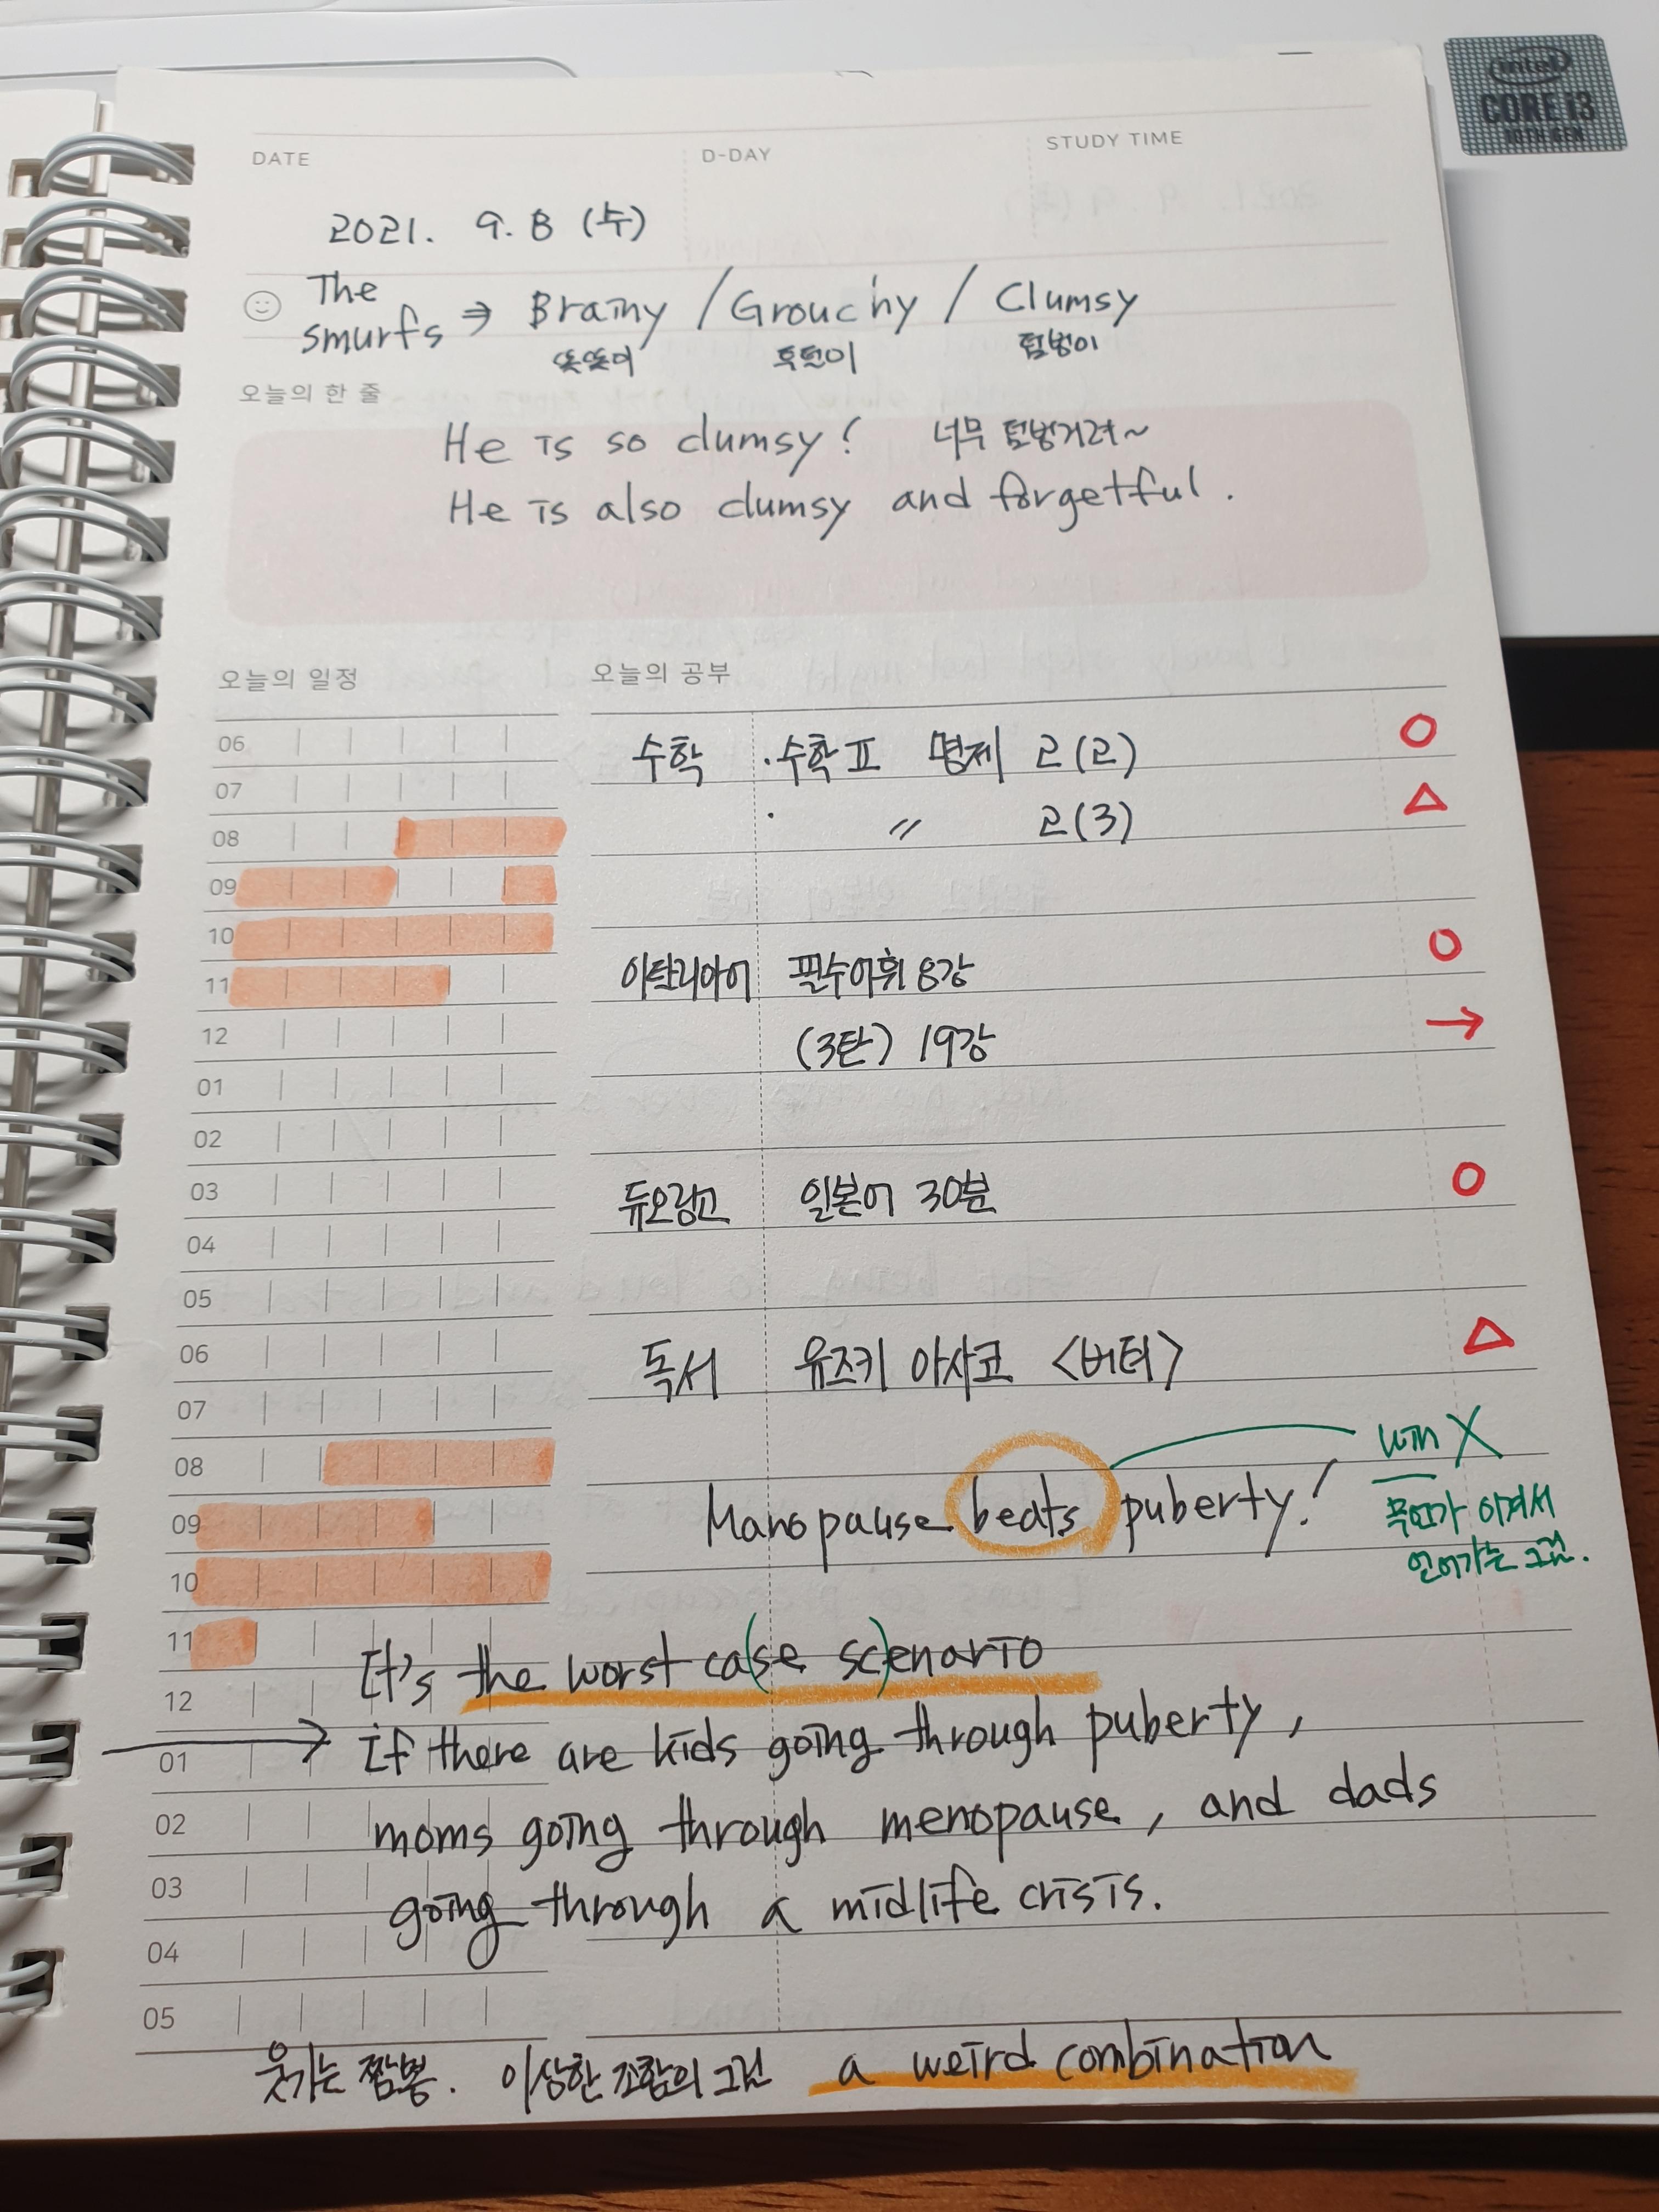 intel
CORE i3
10TH GEN
DATE
D-DAY
STUDY TIME
2021. 9. 8 (수)
The smurfs ⇒ Brainy / Grouchy / Clumsy
똑똑이 투덜이 덤벙이
오늘의 한 줄
He is so clumsy! 너무 덤벙거려~
He is also clumsy and forgetful.
오늘의 일정
오늘의 공부
06
07
08
09
10
11
12
01
02
03
04
05
06
07
08
09
10
11
12
01
02
03
04
05
수학 · 수학 II 명제 2(2) O
· 〃 2(3) △
이탈리아어 필수어휘 8강 O
(3탄) 19강 →
듀오링고 일본어 30분 O
독서 유즈키 아사코 <버터> △
win X
Manopause beats puberty!
이겨서
얻어가는 그런.
It's the worst ca(se sc)enario
→ if there are kids going through puberty,
moms going through menopause, and dads
going through a midlife crisis.
웃기는 짬뽕. 이상한 조합의 그런 a weird combination